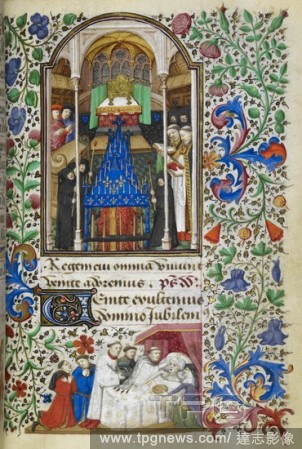 Regem cui omnia viuunt
venite adoremus.
Venite exultemus
domino Jubilem
www.tpgnews.com/ 達志影像